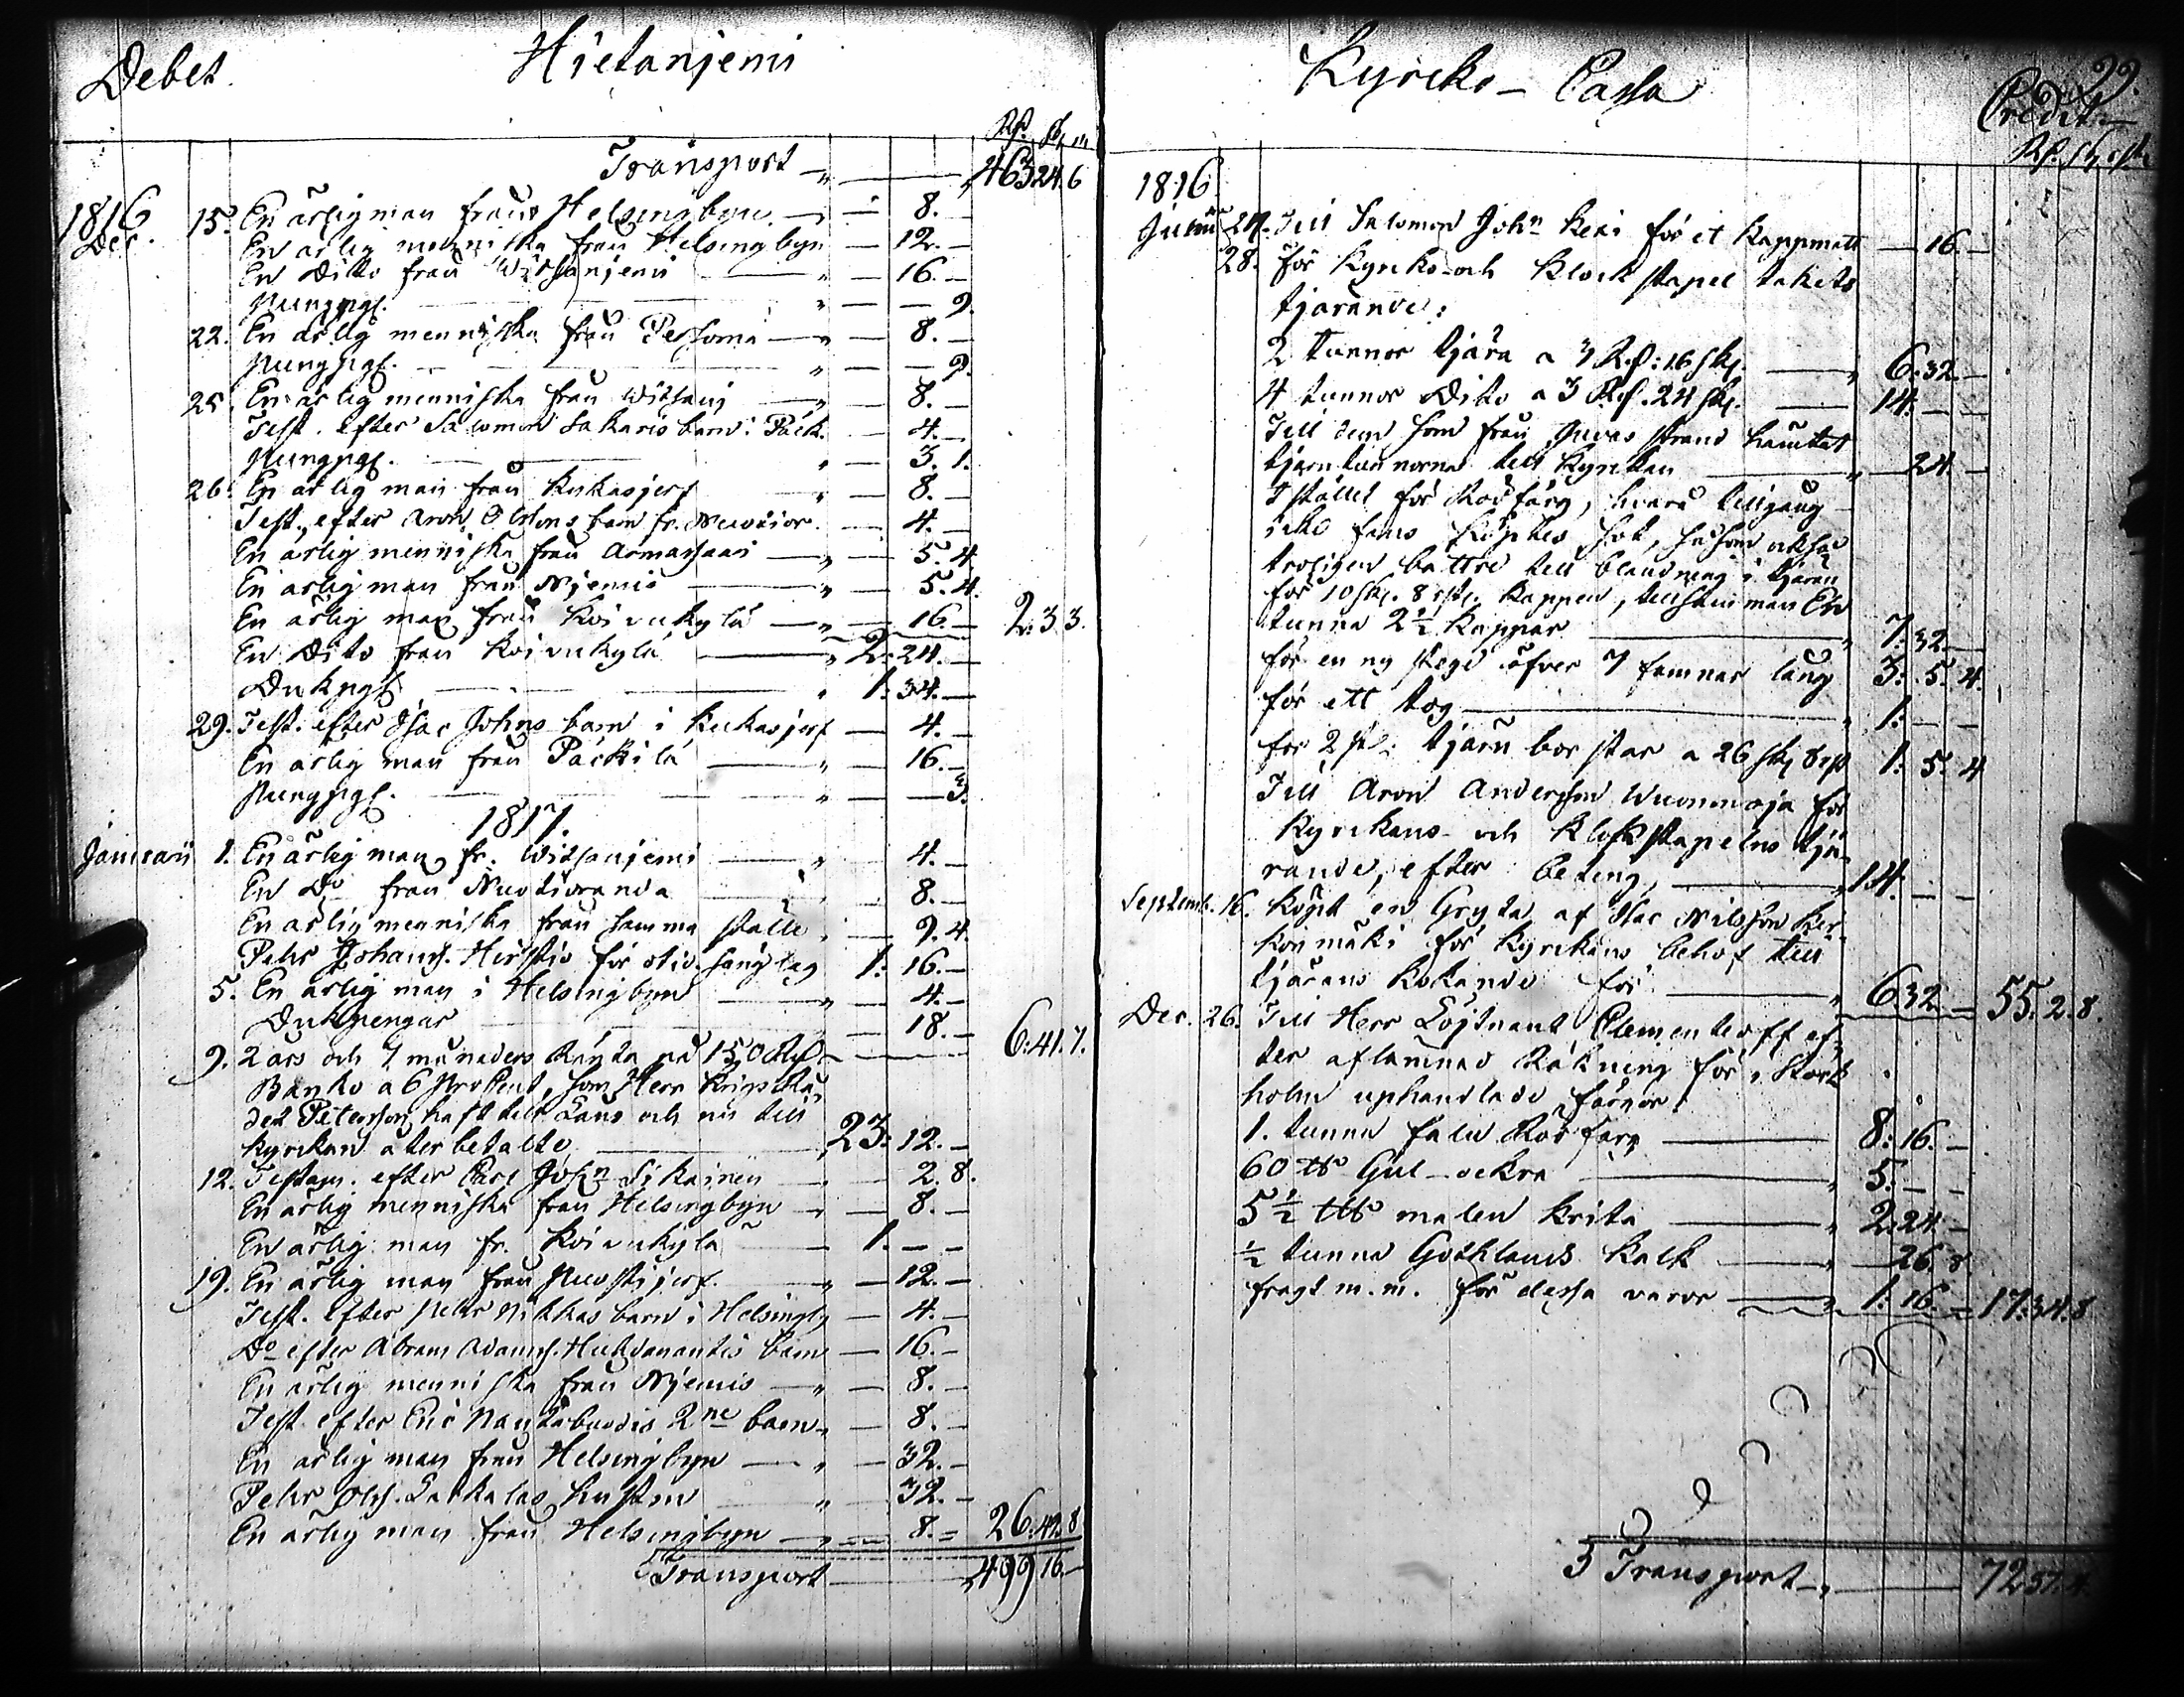 Debet. Hietanjemi
Rd. sk. r.
Transport 463 24. 6
1816 Dec. 15. En ärlig man från Helsingbyn 8. —
En ärlig menniska från Helsingbyn 12. —
En Ditto från Witsanjemi 16. —
Pungpgr. — 9.
22. En ärlig menniska från 8. —
Pungpgr. — 9.
25. En ärlig menniska från Witsanj 8. —
Test. efter Salomon Sakaris barn i Päck. 4. —
Pungpgr. 3. 1.
26. En ärlig man från Kukasjerf 8. —
Test. efter Aron Olofsons barn fr. 4. —
En ärlig menniska från Armassaari 5. 4
En ärlig man från Njemis 5. 4.
En ärlig man från Koivukylä 16. — 2. 3 3.
En Dito från Koivukylä 2. 24. —
Dukpgr 1. 34. —
29. Test. efter Isac Johns barn i Kukasjerf 4. —
En ärlig man från Päckilä 16. —
Pungpgr. — 3.
1817.
Januarii 1. En ärlig man fr. Witsanjemi 4. —
En Do från 8. —
En ärlig menniska från samma ställe 9. 4.
Pehr Johans. Hirstiö för 1. 16. —
5. En ärlig man i Helsingbyn 4. —
Dukpengar 18. — 6. 41. 7.
9. 2 års och 7 månaders Ränta på 150 Rd
Banko a 6 ProCent, som Herr Krigs Rå-
det Petersson haft till Låns och nu till
kyrkan återbetalte 23. 12. —
12. Testam. efter Carl John Sikainen 2. 8.
En ärlig menniska från Helsingbyn 8. —
En ärlig man fr. Koivukylä 1. — —
19. En ärlig man från 12. —
Test. efter Pehr Nikkas barn i Helsingby 4. —
Do efter Abram Adams. barn 16. —
En ärlig menniska från Njemis 8. —
Test. efter Eric 2ne barn 8. —
En ärlig man från Helsingbyn 32. —
Pehr Ols. Lackalas hustru 32. —
En ärlig man från Helsingbyn 8. = 26. 42. 8
Transport 499 16. —
Kyrcko-Cassa 99.
Credit.
Rd. sk. rst.
1816
Junii 24. Till Salomon John Keri för et Kappmått 16. —
28. För Kyrko- och Klockstapel takets
tjärande:
2 tunnor tjära a 3 Rd: 16 sk. 6. 32. —
4 tunnor Dito a 3 Rd. 24 sk. 14. — —
Till dem som från strand hämtat
tjärutunnorna till Kyrckan 24. —
I stället för Rödfärg, hvara tillgång
icke fans köptes Sot, såsom också
troligen bättre till blandning i tjäran
för 10 sk. 8 rst. Kappen, tillsamman En
tunna 2 1/2 Kappar 7. 32. —
för en ny stege öfver 7 famnar lång 3. 5. 4.
för ett tog 1. — —
för 2 st. tjäru borstar a 26 sk 8 rst 1. 5. 4
Till Aron Andersson Wuonnoja för
Kyrckans- och Klockstapelns tjä-
rande, efter beting, 14. — —
Septemb. 16. Köpt en Gryta af Isac Nilsson Ker-
konmäki för Kyrckans behof till
tjärans kokande för 6 32 = 55. 2. 8.
Dec. 26. Till Herr Löjtnant Clementeoff ef-
ter aflämnad Räkning för i Stock-
holm uphandlade färgor
1. tunna falu Rödfärg 8. 16. —
60 tt Gul-ockra 5. — —
5 1/2 tt malen krita 2. 24. —
1/2 tunna Gothlands Kalk 26. 8
fragt m.m. för dessa varor 1. 16. = 17. 34. 8
Transport 72 37. 4